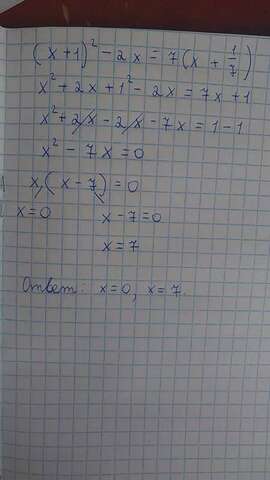 (x+1)² - 2x = 7(x + 1/7)
x² + 2x + 1² - 2x = 7x + 1
x² + 2x - 2x - 7x = 1 - 1
x² - 7x = 0
x (x - 7) = 0
x = 0 x - 7 = 0
x = 7
Ответ: x = 0, x = 7.